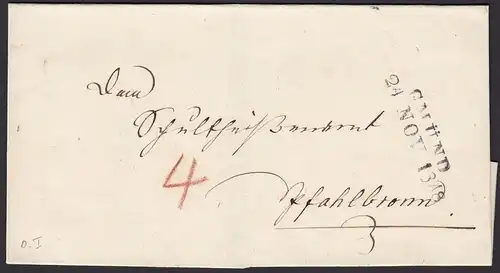 Dem
Schultheißenamt
4
Pfahlbronn.
GMÜND
24 NOV 1848
D. I